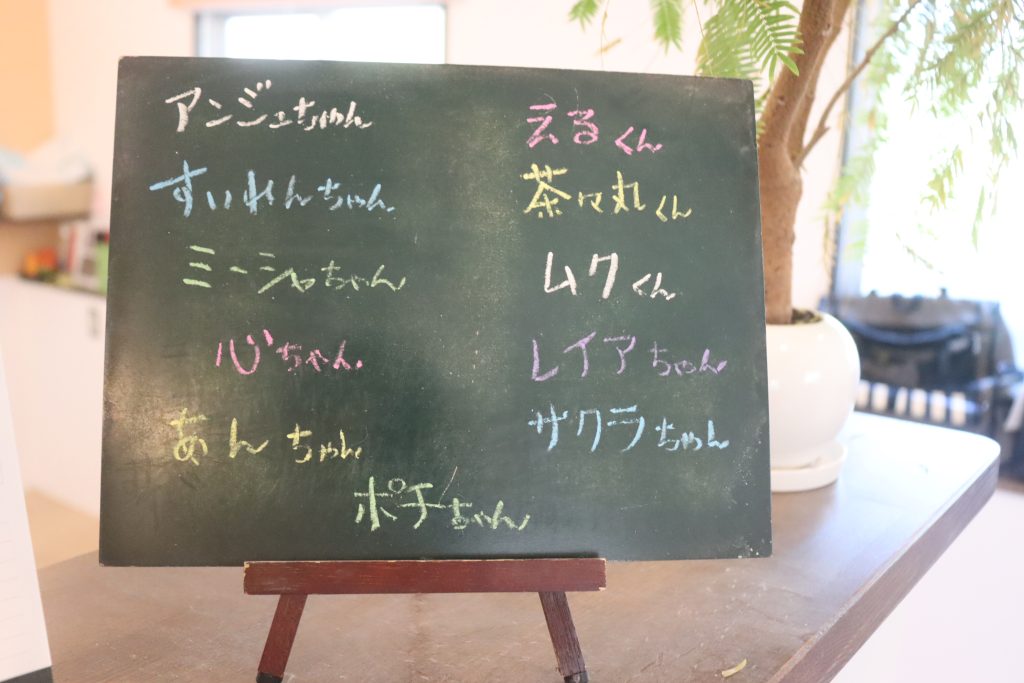 アンジュちゃん
すいれんちゃん
ミーシャちゃん
心ちゃん
あんちゃん
える くん
茶々丸くん
ムク くん
レイア ちゃん
サクラちゃん
ポチちゃん